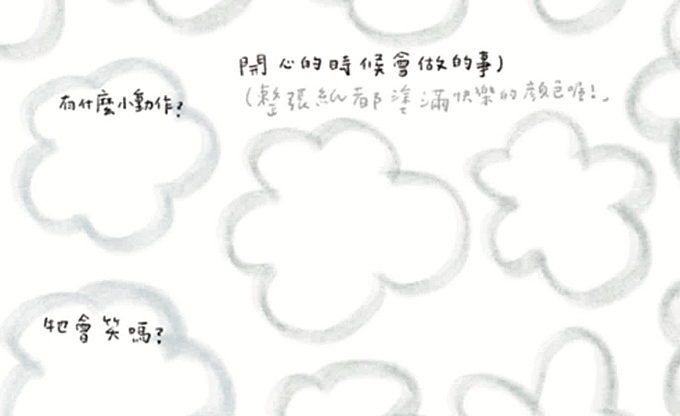 開心的時候會做的事)
(整張紙都塗滿快樂的顏色喔!)
有什麼小動作?
牠會笑嗎?